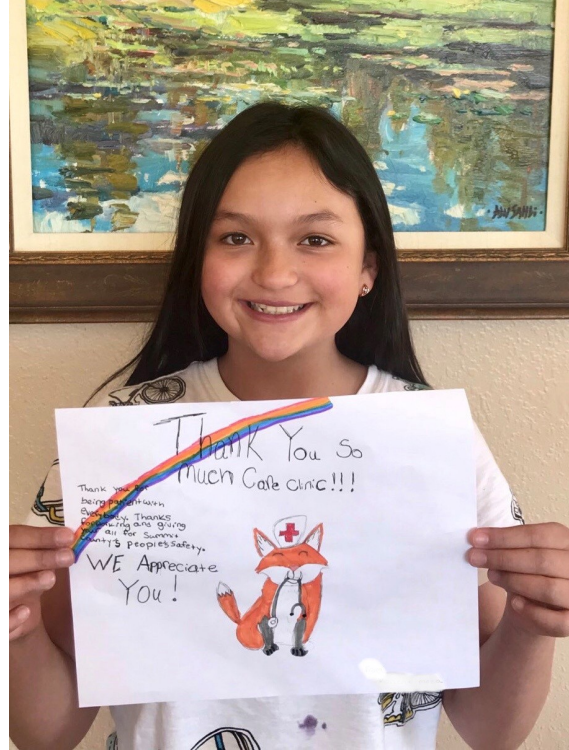 Thank You So
much Care Clinic!!!
Thank you for
being patient with
everybody. Thanks
giving
your all for Summit
County's people's safety.
WE Appreciate
You!